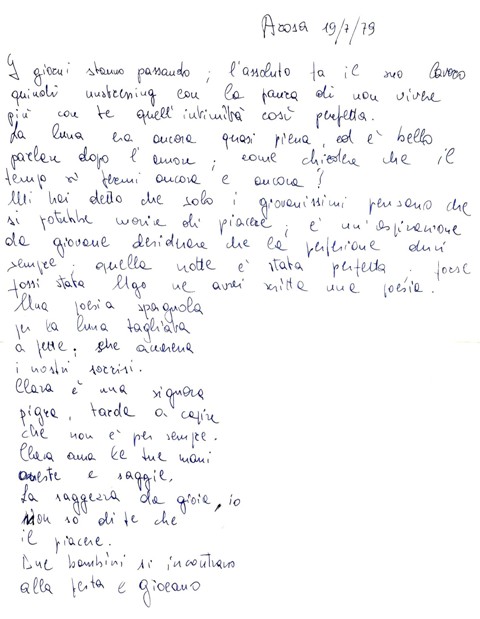 Arosa 19/7/79
I giorni stanno passando; l'assoluto fa il suo lavoro
quindi con la paura di non vivere
più con te quell'intimità così perfetta.
La luna era ancora quasi piena, ed è bello
parlare dopo l'amore; come chiedere che il
tempo si fermi ancora e ancora?
Mi hai detto che solo i giovanissimi pensano che
si potrebbe morire di piacere; è un'aspirazione
da giovane desiderare che la perfezione duri
sempre. quella notte è stata perfetta. forse
fossi stata Ugo ne avrei scritta una poesia.
Una poesia spagnola
per la luna tagliata
a fette, che
i nostri sorrisi.
Clara è una signora
pigra, tarda a capire
che non è per sempre.
Clara ama le tue mani
oneste e saggie.
La saggezza da gioia, io
Non so di te che
il piacere.
Due bambini si incontrano
alla festa e giocano